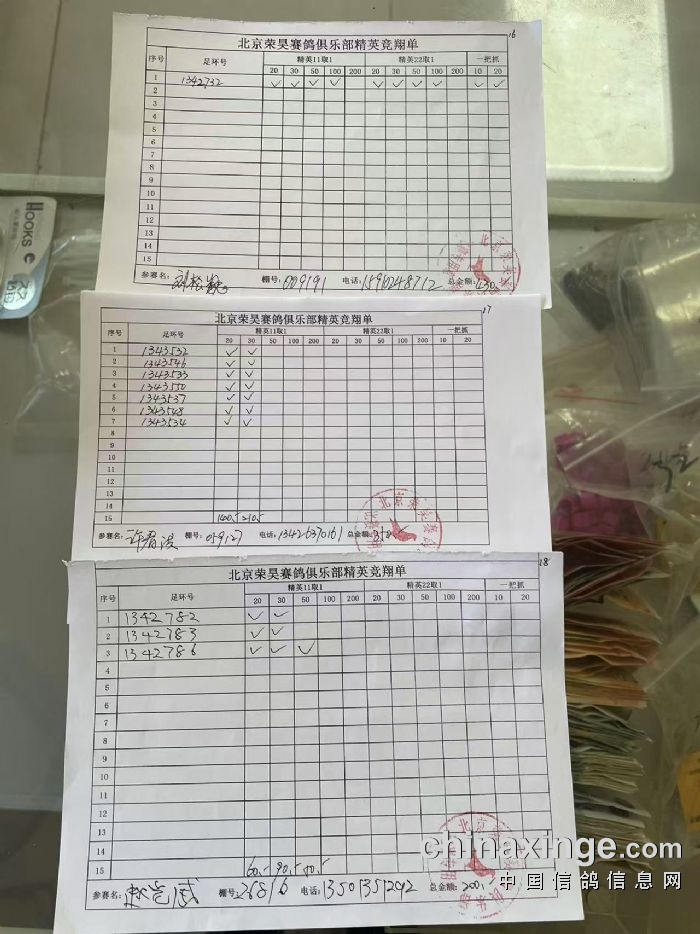 16
北京荣昊赛鸽俱乐部精英竞翔单
序号 足环号 精英11取1 精英22取1 一把抓
20 30 50 100 200 20 30 50 100 200 10 20
1 1342732 ✓ ✓ ✓ ✓ ✓ ✓ ✓ ✓ ✓ ✓
2
3
4
5
6
7
8
9
10
11
12
13
14
15
参赛名: 棚号: 009191 电话: 15910248712 总金额: 430
HOOKS
17
北京荣昊赛鸽俱乐部精英竞翔单
序号 足环号 精英11取1 精英22取1 一把抓
20 30 50 100 200 20 30 50 100 200 10 20
1 1343532 ✓ ✓
2 1343546 ✓ ✓
3 1343533 ✓ ✓
4 1343550 ✓ ✓
5 1343537 ✓ ✓
6 1343548 ✓ ✓
7 1343534 ✓ ✓
8
9
10
11
12
13
14
15
参赛名: 棚号: 059127 电话: 13426370161 总金额: 350
18
北京荣昊赛鸽俱乐部精英竞翔单
序号 足环号 精英11取1 精英22取1 一把抓
20 30 50 100 200 20 30 50 100 200 10 20
1 1342782 ✓ ✓
2 1342783 ✓ ✓
3 1342786 ✓ ✓ ✓
4
5
6
7
8
9
10
11
12
13
14
15 60 90 50
参赛名: 棚号: 26816 电话: 13501351292 总金额: 200
chinaxinge.com
中国信鸽信息网